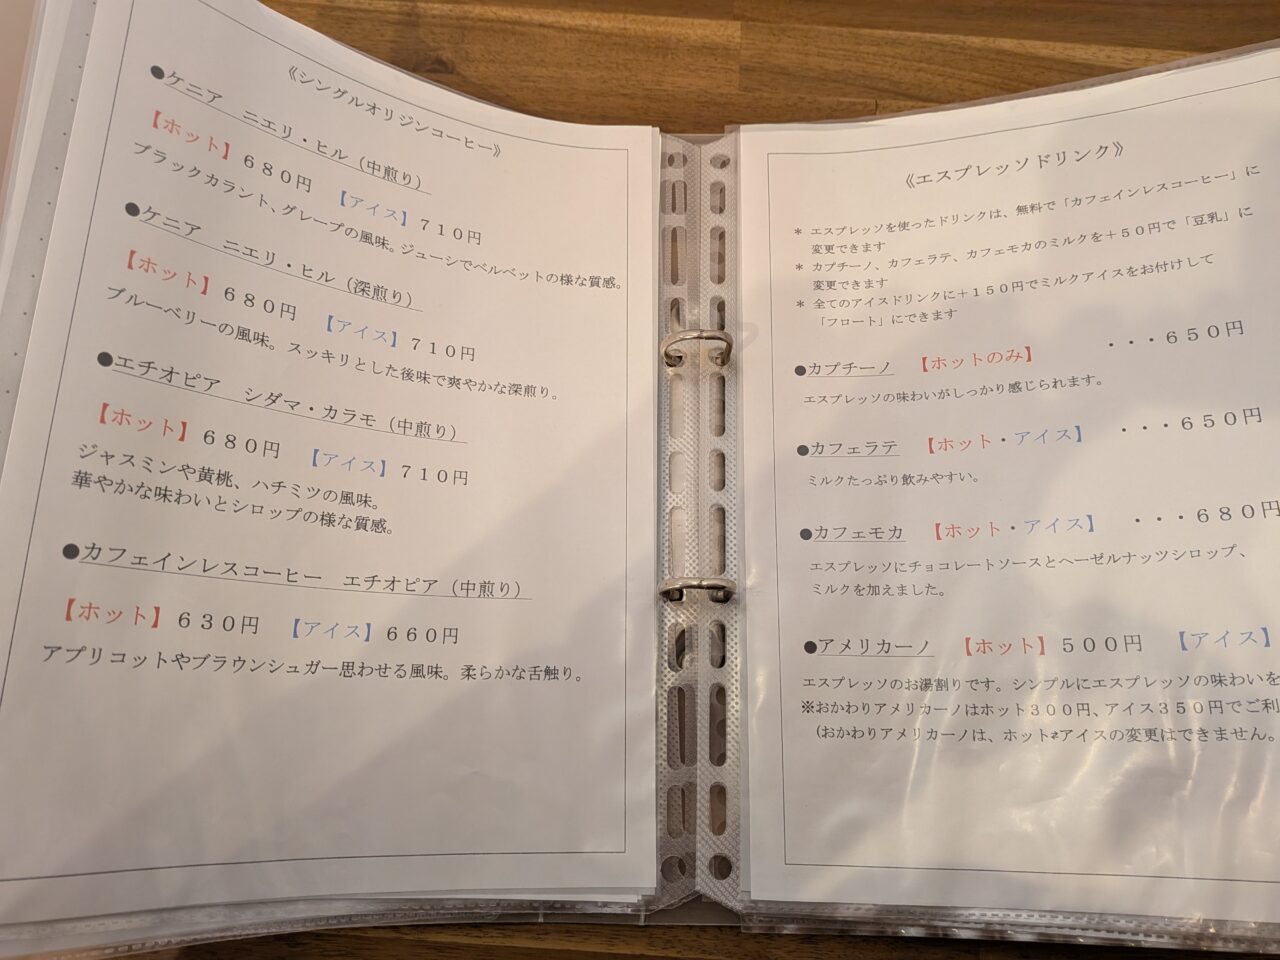 《シングルオリジンコーヒー》
●ケニア　ニエリ・ヒル（中煎り）
【ホット】６８０円　【アイス】７１０円
ブラックカラント、グレープの風味。ジューシでベルベットの様な質感。
●ケニア　ニエリ・ヒル（深煎り）
【ホット】６８０円　【アイス】７１０円
ブルーベリーの風味。スッキリとした後味で爽やかな深煎り。
●エチオピア　シダマ・カラモ（中煎り）
【ホット】６８０円　【アイス】７１０円
ジャスミンや黄桃、ハチミツの風味。
華やかな味わいとシロップの様な質感。
●カフェインレスコーヒー　エチオピア（中煎り）
【ホット】６３０円　【アイス】６６０円
アプリコットやブラウンシュガー思わせる風味。柔らかな舌触り。
《エスプレッソドリンク》
＊ エスプレッソを使ったドリンクは、無料で「カフェインレスコーヒー」に
変更できます
＊ カプチーノ、カフェラテ、カフェモカのミルクを＋５０円で「豆乳」に
変更できます
＊ 全てのアイスドリンクに＋１５０円でミルクアイスをお付けして
「フロート」にできます
●カプチーノ　【ホットのみ】　・・・６５０円
エスプレッソの味わいがしっかり感じられます。
●カフェラテ　【ホット・アイス】　・・・６５０円
ミルクたっぷり飲みやすい。
●カフェモカ　【ホット・アイス】　・・・６８０円
エスプレッソにチョコレートソースとヘーゼルナッツシロップ、
ミルクを加えました。
●アメリカーノ　【ホット】５００円　【アイス】
エスプレッソのお湯割りです。シンプルにエスプレッソの味わいを
※おかわりアメリカーノはホット３００円、アイス３５０円でご利
（おかわりアメリカーノは、ホット⇄アイスの変更はできません。